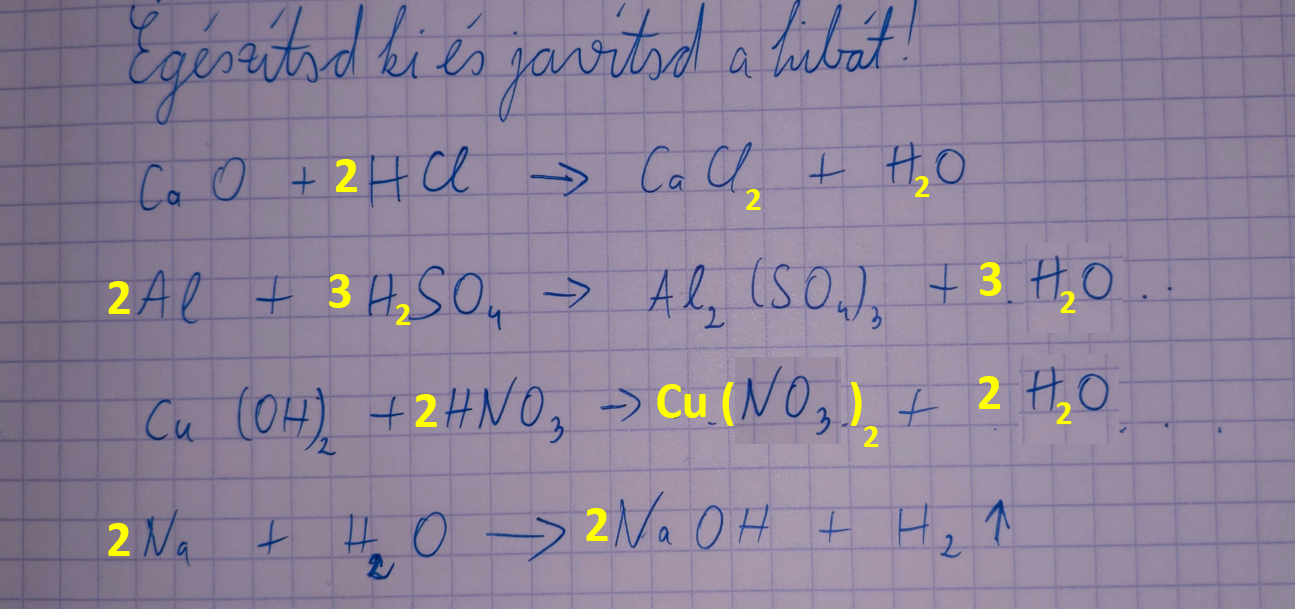 Egészítsd ki és javítsd a hibát!
CaO + 2HCl → CaCl₂ + H₂O
2Al + 3H₂SO₄ → Al₂(SO₄)₃ + 3. H₂O . .
Cu(OH)₂ + 2HNO₃ → Cu(NO₃)₂ + 2 H₂O . . .
2Na + H₂O → 2NaOH + H₂↑